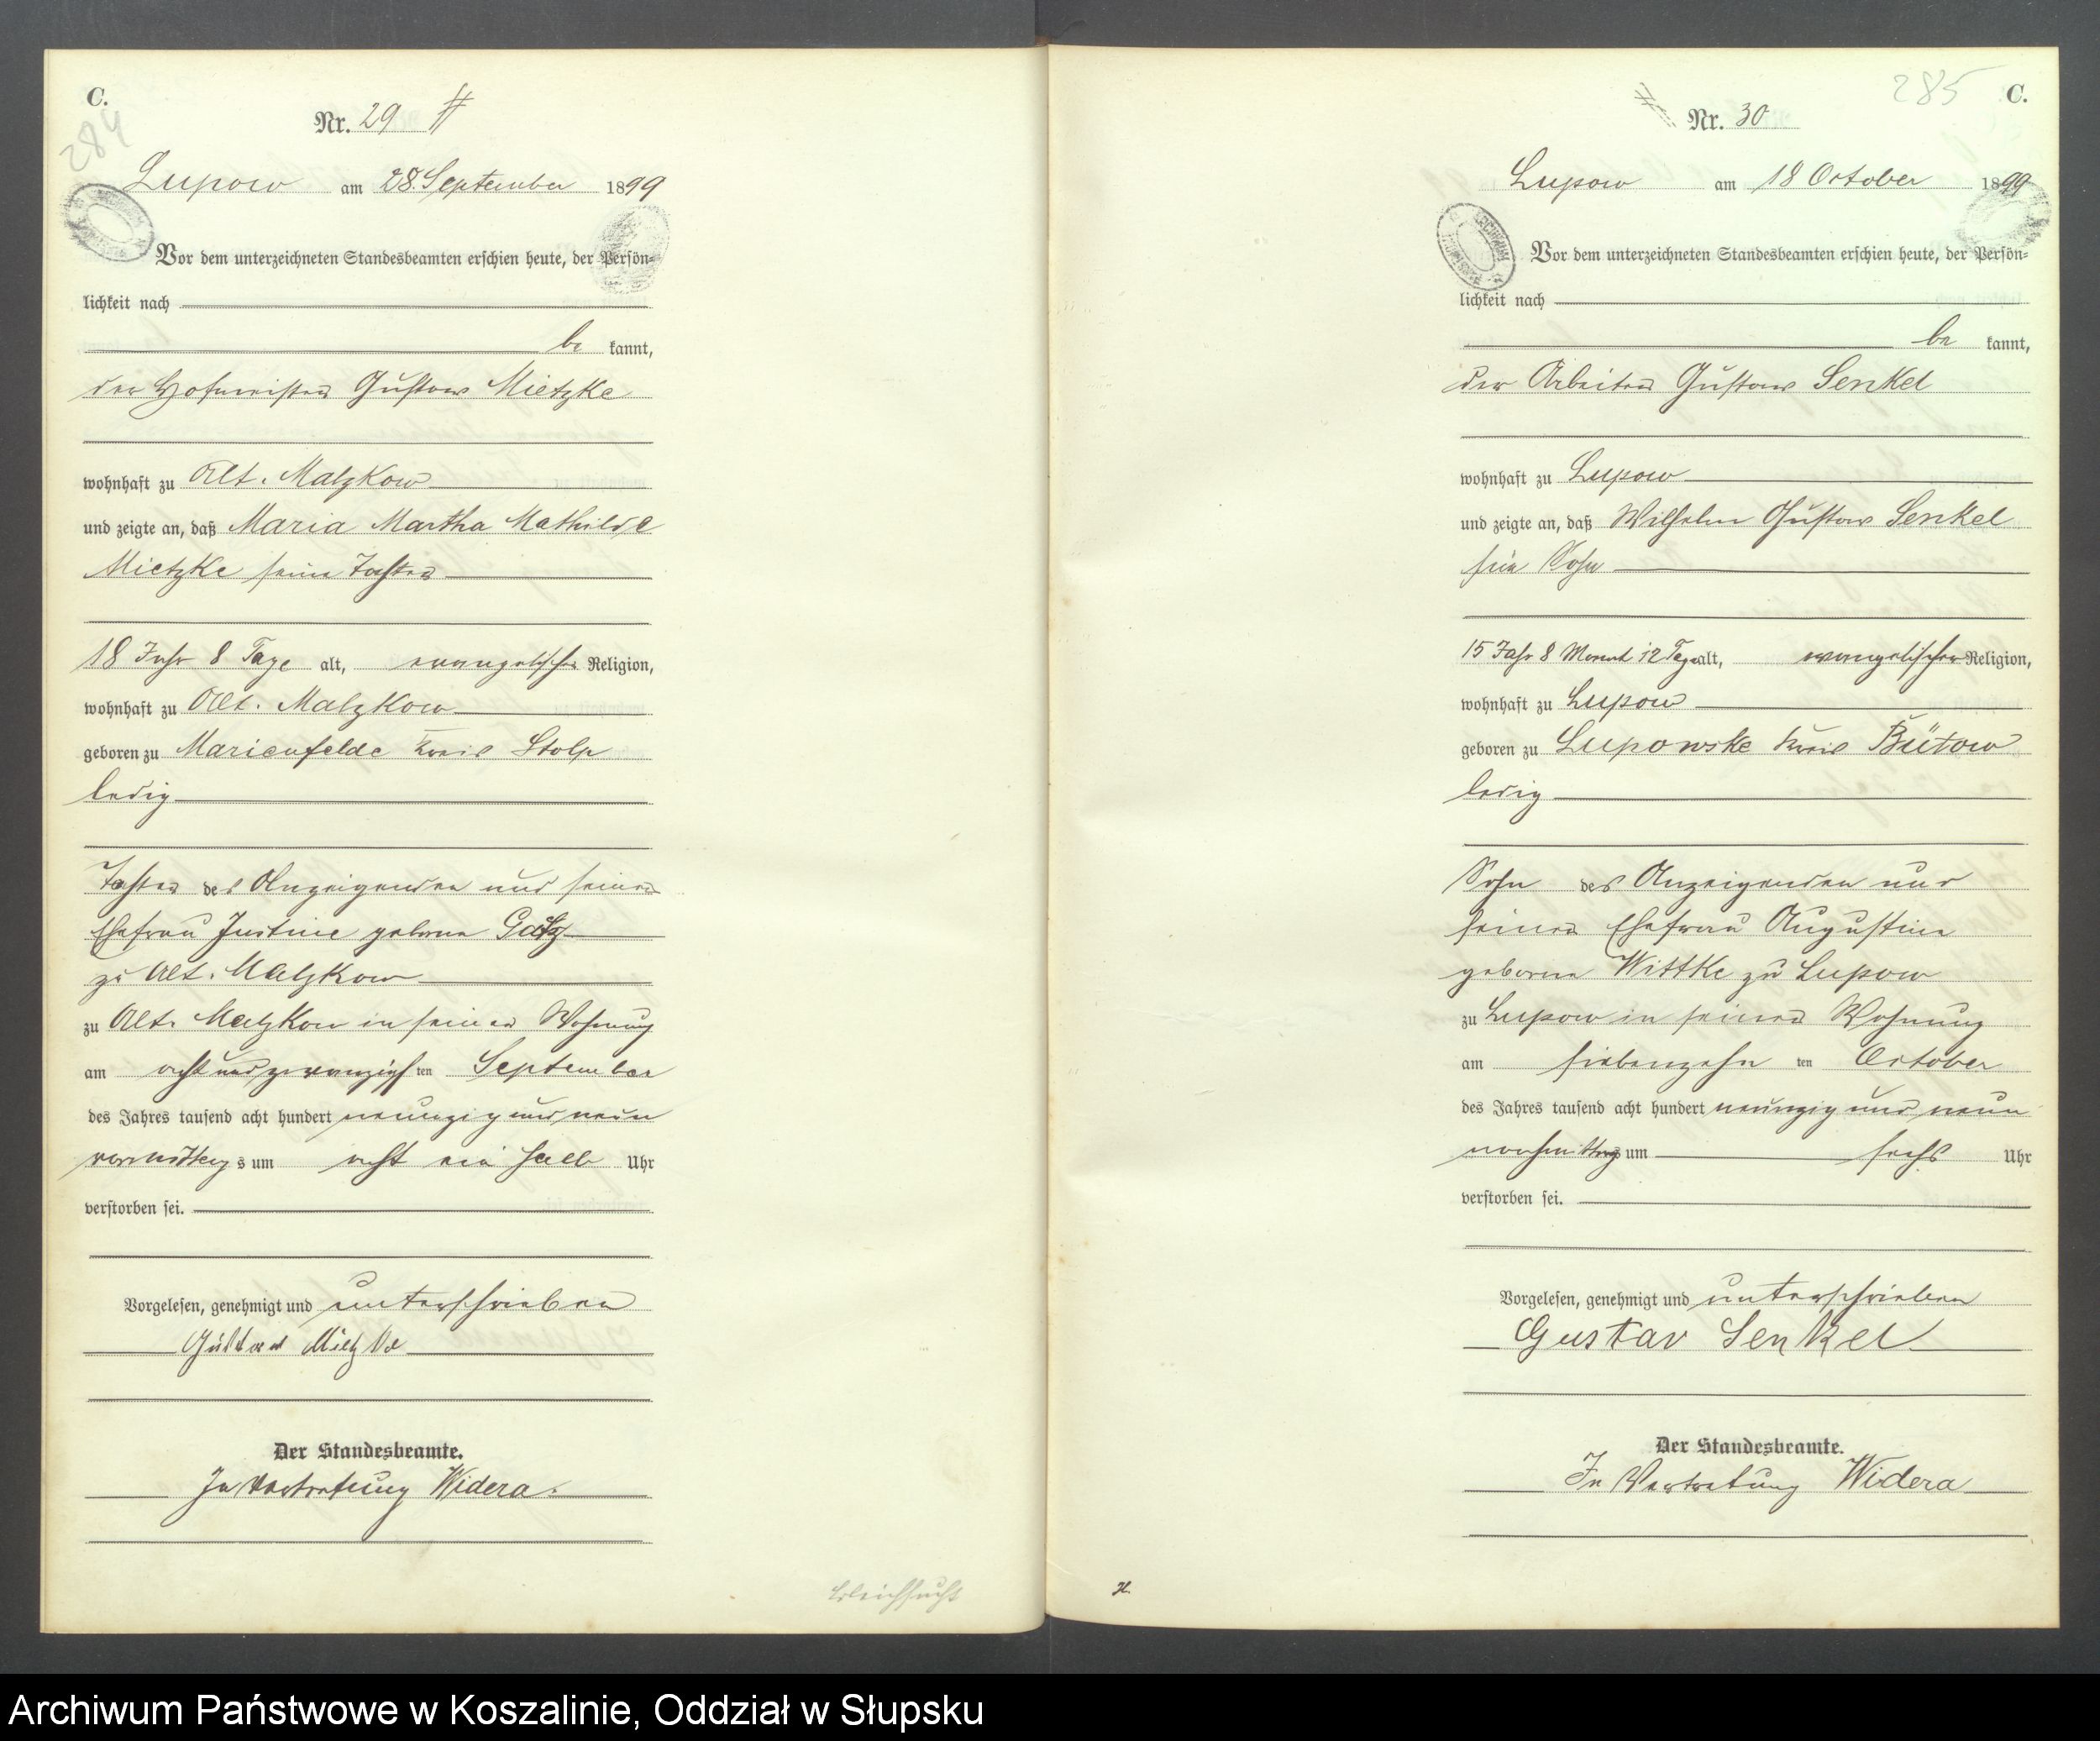 C.
284
Nr. 29
Lupow am 28. September 1899
Vor dem unterzeichneten Standesbeamten erschien heute, der Persön-
lichkeit nach
be kannt,
der Hofmeister Gustav Mietzke
wohnhaft zu Alt. Malzkow
und zeigte an, daß Maria Martha Mathilde
Mietzke seine Tochter
18 Jahr 8 Tage alt, evangelischer Religion,
wohnhaft zu Alt. Malzkow
geboren zu Marienfelde Kreis Stolp
ledig
Tochter des Anzeigenden und seiner
Ehefrau Justine geborne
zu Alt. Malzkow
zu Alt. Malzkow in seiner Wohnung
am acht und zwanzigsten September
des Jahres tausend acht hundert neunzig und neun
vormittags um acht ein halb Uhr
verstorben sei.
Vorgelesen, genehmigt und unterschrieben
Gustav Mietzke
Der Standesbeamte.
In Vertretung Widera.
Bleichsucht
285 C.
Nr. 30
Lupow am 18 October 1899
Vor dem unterzeichneten Standesbeamten erschien heute, der Persön-
lichkeit nach
be kannt,
der Arbeiter Gustav Senkel
wohnhaft zu Lupow
und zeigte an, daß Wilhelm Gustav Senkel
sein Sohn
15 Jahr 8 Monat 12 Tage alt, evangelischer Religion,
wohnhaft zu Lupow
geboren zu Lupowske Kreis Bütow
ledig
Sohn des Anzeigenden und
seiner Ehefrau Augustine
geborne Wittke zu Lupow
zu Lupow in seiner Wohnung
am siebenzehn ten October
des Jahres tausend acht hundert neunzig und neun
nachmittags um sechs Uhr
verstorben sei.
Vorgelesen, genehmigt und unterschrieben
Gustav Senkel
Der Standesbeamte.
In Vertretung Widera
Archiwum Państwowe w Koszalinie, Oddział w Słupsku